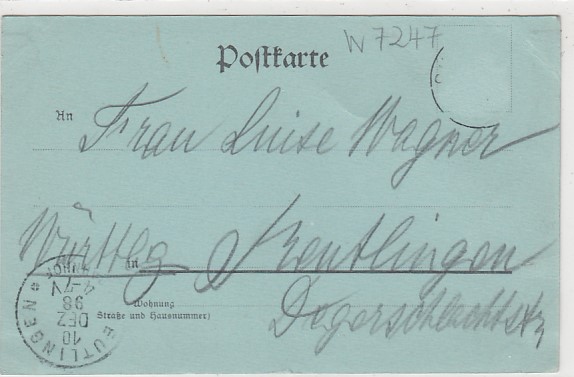 W 7247
Postkarte
An Frau Luise Wagner
in Württbg Reutlingen
Wohnung
(Straße und Hausnummer)
REUTLINGEN
BAHNHOF
10
DEZ
98
4-7V